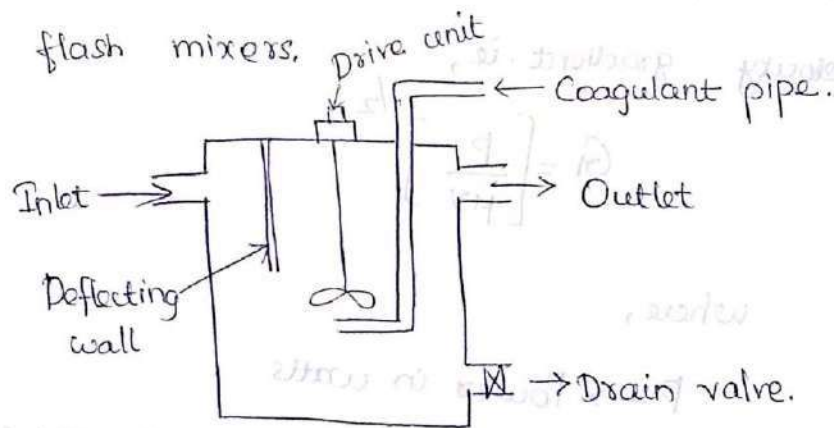 flash mixers.
Drive unit
Coagulant pipe.
Inlet
Outlet
Deflecting
wall
Drain valve.